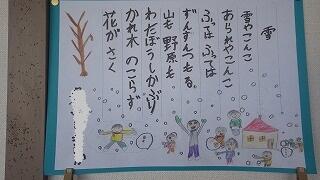 雪
雪やこんこ
あられやこんこ
ふっては ふっては
ずんずんつもる
山も 野原も
わたぼうしかぶり
かれ木 のこらず
花がさく